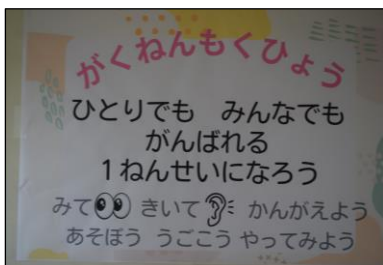 がくねんもくひょう
ひとりでも みんなでも
がんばれる
1ねんせいになろう
みて きいて かんがえよう
あそぼう うごこう やってみよう